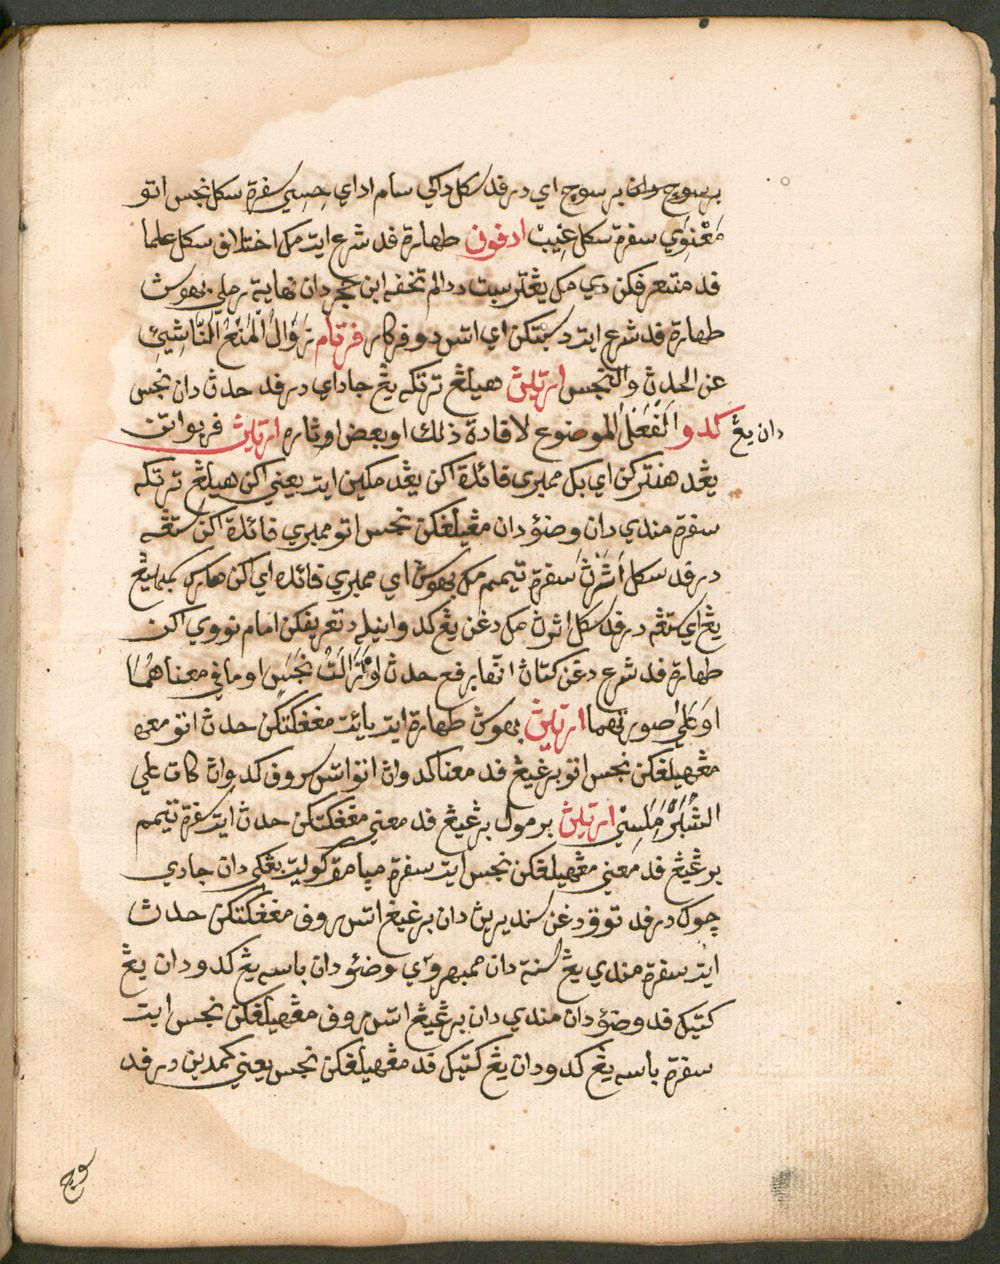 برسوچ دان برسوچ اي درفد سكل داكي سام اد اي حسي سفرة سكل نجس اتو
معنوي سفرة سكل عيب ادفون طهارة فد شرع ايت مك اختلاف سكل علما
فد منتعريفكن دي مك يڠ ترسبت ددالم تحفه ابن حجر دان نهاية رملي بهوس
طهارة فد شرع ايت دسبتكن اي اتس دو فركار فرتام زوال المنع الناشئ
عن الحدث والنجس ارتيڽ هيلڠ تركه يڠ جادي درفد حدث دان نجس
دان يڠ كدو الفعل الموضوع لافادة ذلك او بعض اوثاره ارتيڽ فربواتن
يڠ دهنتركن اي بك ممبري فائدة اكن يڠ دمكين ايت يعني اكن هيلڠ تركه
سفرة مندي دان وضوء دان مڠهيلڠكن نجس اتو ممبري فائدة اكن ستڠه
درفد سكل اثرڽ سفرة تيمم مك بهوس اي ممبري فائده اي اكن هارس سمبهيڠ
يڠ اي ستڠه درفد سكل اثرڽ مك دڠن يڠ كدو اينيله دتعريفكن امام نووي اكن
طهارة فد شرع دڠن كتاڽ انها رفع حدث او ازالت نجس او ما في معناهما
او على صورتهما ارتيڽ بهوس طهارة ايت يائت مڠڠكتكن حدث اتو
مڠهيلڠكن نجس اتو برڠيڠ فد معنا كدواڽ اتو اتس روف كدواڽ كات علي
الشبراملسي ارتيڽ برمول برڠيڠ فد معني مڠڠكتكن حدث ايت سفرة تيمم
برڠيڠ فد معني مڠهيلڠكن نجس ايت سفرة مپامق كوليت بڠكي دان جادي
چوك درفد توق دڠن سنديريڽ دان برڠيڠ اتس روف مڠڠكتكن حدث
ايت سفرة مندي يڠ سنة دان ممبهروي وضوء دان باسه يڠ كدو دان يڠ
كتيك فد وضوء دان مندي دان برڠيڠ اتس روف مڠهيلڠكن نجس ايت
سفرة باسه يڠ كدو دان يڠ كتيك فد مڠهيلڠكن نجس يعني كمدين درفد
سوچ